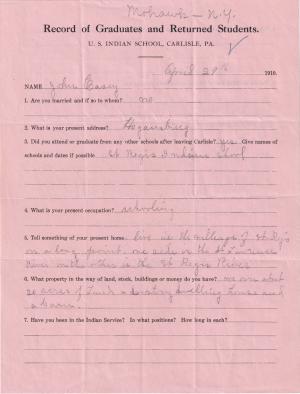 Mohawk - N.Y.
Record of Graduates and Returned Students.
U. S. INDIAN SCHOOL, CARLISLE, PA.
April 29th 1910.
NAME John
1. Are you married and if so to whom? no
2. What is your present address? Hogansburg
3. Did you attend or graduate from any other schools after leaving Carlisle? yes Give names of
schools and dates if possible St Regis Indian School
4. What is your present occupation? schooling
5. Tell something of your present home. live in the village of St Regis
on a long point. one side is the St Lawrence
River and other is the St Regis River
6. What property in the way of land, stock, buildings or money do you have? we own about
20 acres of land a dwelling house and
a barn
7. Have you been in the Indian Service? In what positions? How long in each?